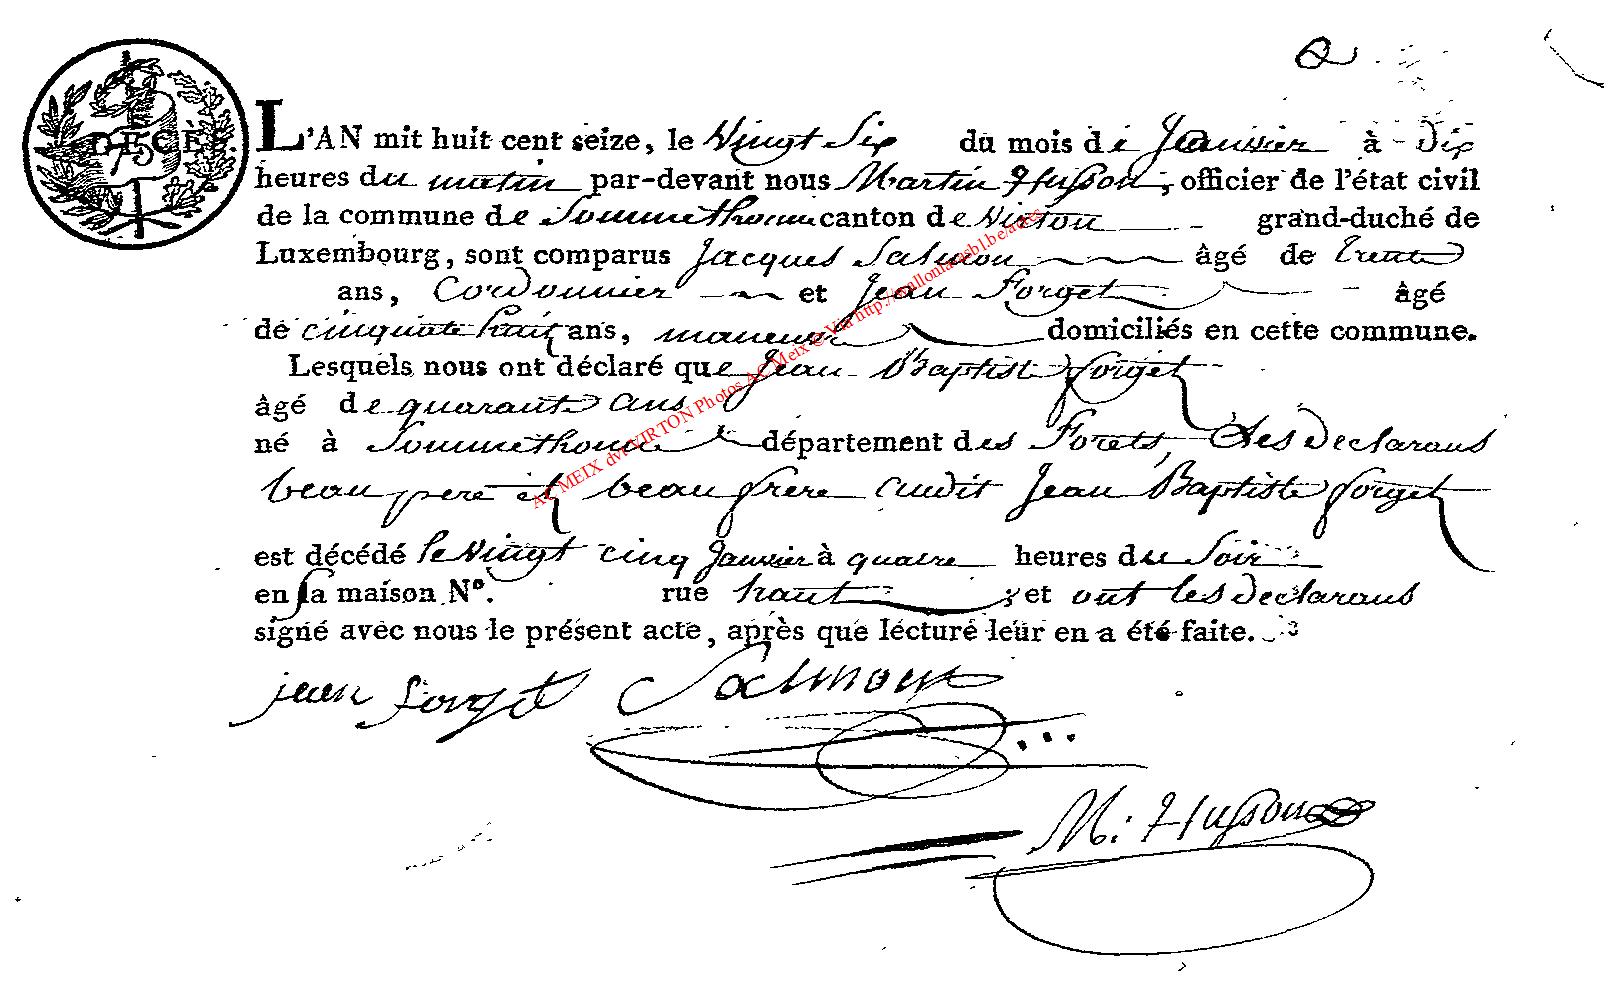 2
DÉCÈS.
75
L'AN mil huit cent seize, le Vingt Six du mois de Janvier à Dix
heures du matin par-devant nous Martin Husson, officier de l'état civil
de la commune de Sommethonne canton de Virton grand-duché de
Luxembourg, sont comparus Jacques Salmon âgé de trente
ans, Cordonnier et Jean Forget âgé
de cinquante huit ans, maneuvre domiciliés en cette commune.
Lesquels nous ont déclaré que Jean Baptiste forget
âgé de quarante ans
né à Sommethonne département des Forets, Les Declarans
beau pere et beau frere audit Jean Baptiste forget
est décédé le Vingt cinq Janvier à quatre heures du Soir
en sa maison N°. rue haute ; et ont les Declarans
signé avec nous le présent acte, après que lecture leur en a été faite.
jean forget Salmon
M: Husson
AC MEIX dvt VIRTON Photos AC Meix © Via http://wallonia.asbl.be/actes